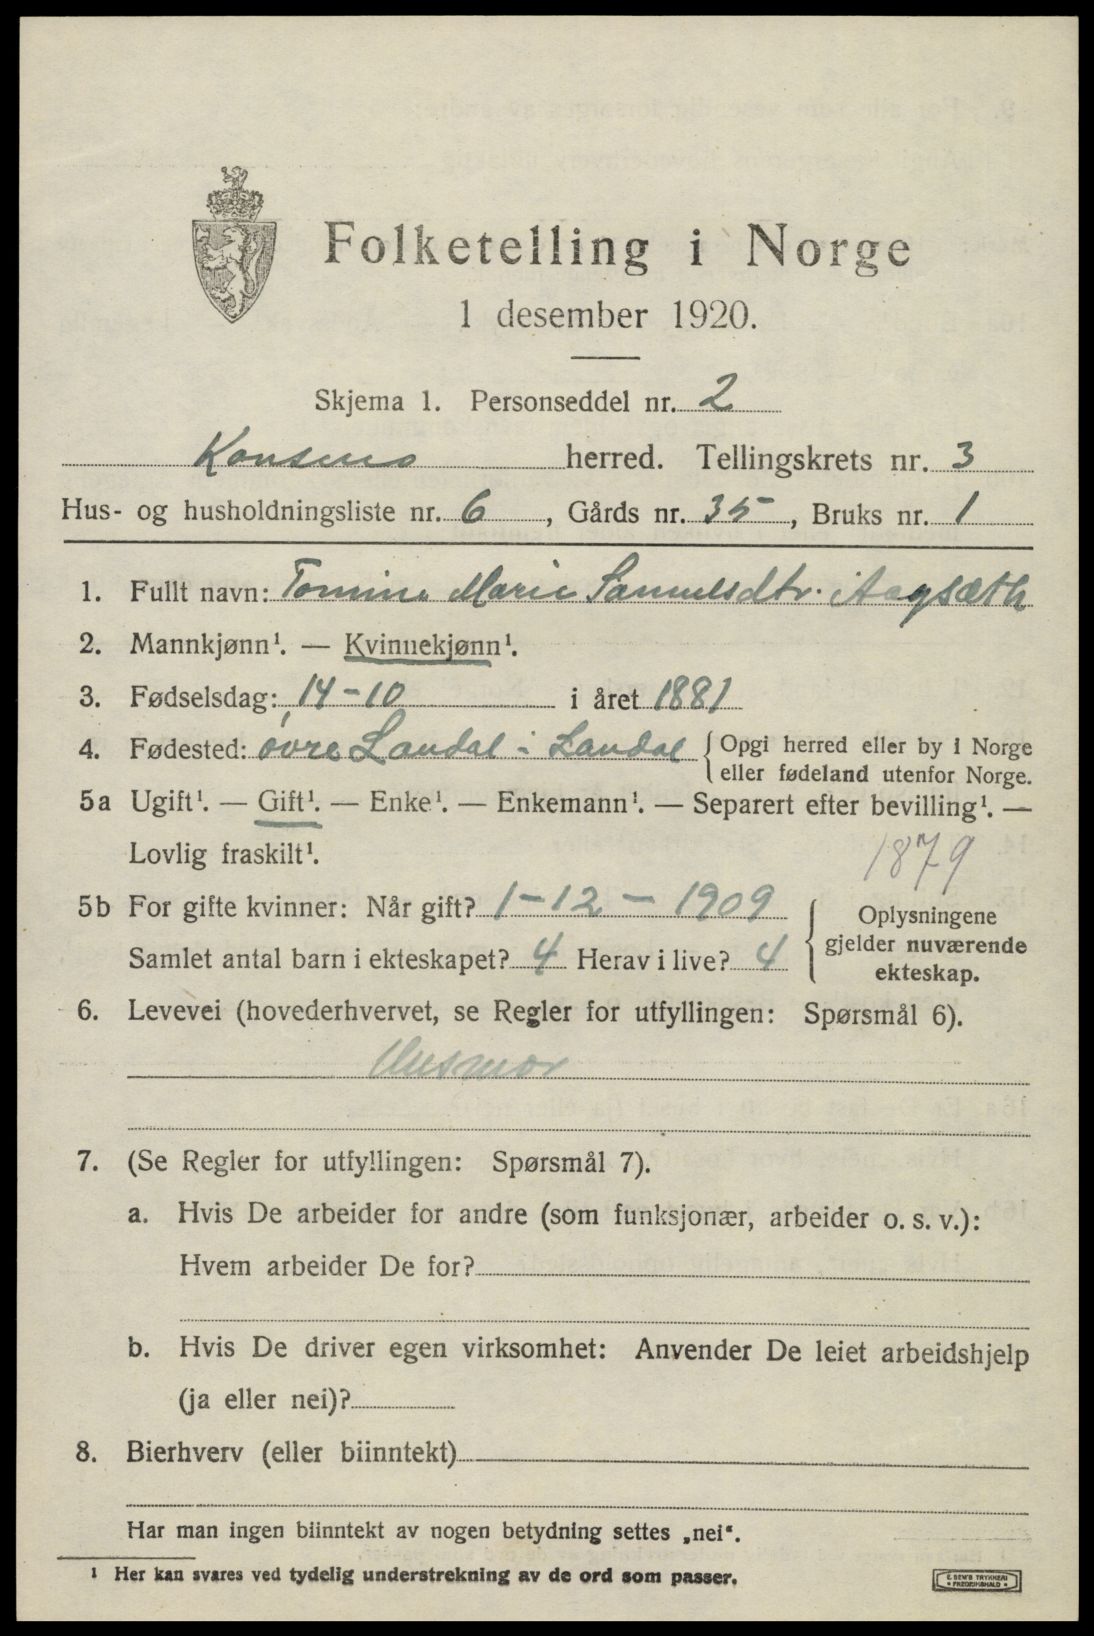 Folketelling i Norge
1 desember 1920.
Skjema 1. Personseddel nr. 2
herred. Tellingskrets nr. 3
Hus- og husholdningsliste nr. 6, Gårds nr. 35, Bruks nr. 1
1. Fullt navn: Tomine Marie Samuelsdtr. Aagsæth
2. Mannkjønn¹. — Kvinnekjønn¹.
3. Fødselsdag: 14-10 i året 1881
4. Fødested: øvre Landal i Landal { Opgi herred eller by i Norge
eller fødeland utenfor Norge.
5a Ugift¹. — Gift¹. — Enke¹. — Enkemann¹. — Separert efter bevilling¹. —
Lovlig fraskilt¹.
1879
5b For gifte kvinner: Når gift? 1-12-1909
Samlet antal barn i ekteskapet? 4 Herav i live? 4
{ Oplysningene
gjelder nuværende
ekteskap.
6. Levevei (hovederhvervet, se Regler for utfyllingen: Spørsmål 6).
Husmor
7. (Se Regler for utfyllingen: Spørsmål 7).
a. Hvis De arbeider for andre (som funksjonær, arbeider o. s. v.):
Hvem arbeider De for?
b. Hvis De driver egen virksomhet: Anvender De leiet arbeidshjelp
(ja eller nei)?
8. Bierhverv (eller biinntekt)
Har man ingen biinntekt av nogen betydning settes „nei“.
¹ Her kan svares ved tydelig understrekning av de ord som passer.
E. SEM'S TRYKKERI
• FREDRIKSHALD •